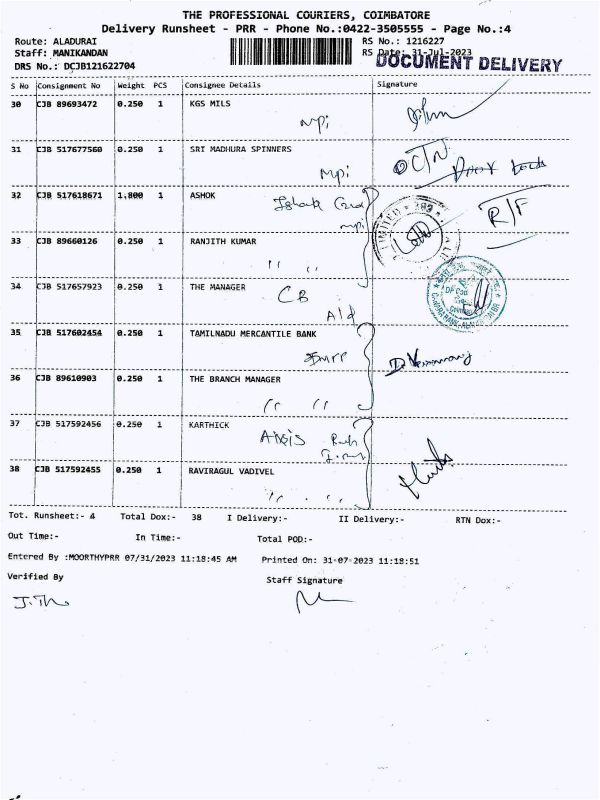 THE PROFESSIONAL COURIERS, COIMBATORE
Delivery Runsheet - PRR - Phone No.:0422-3505555 - Page No.:4
Route: ALADURAI RS No.: 1216227
Staff: MANIKANDAN RS Date: 31-Jul-2023
DOCUMENT DELIVERY
DRS No.: DCJB121622704
S No Consignment No Weight PCS Consignee Details Signature
30 CJB 89693472 0.250 1 KGS MILS
mpi
31 CJB 517677560 0.250 1 SRI MADHURA SPINNERS
mpi
32 CJB 517618671 1.800 1 ASHOK
R/F
33 CJB 89660126 0.250 1 RANJITH KUMAR
34 CJB 517657923 0.250 1 THE MANAGER
CB
Ald
35 CJB 517602454 0.250 1 TAMILNADU MERCANTILE BANK
36 CJB 89610903 0.250 1 THE BRANCH MANAGER
37 CJB 517592456 0.250 1 KARTHICK
38 CJB 517592455 0.250 1 RAVIRAGUL VADIVEL
Tot. Runsheet:- 4 Total Dox:- 38 I Delivery:- II Delivery:- RTN Dox:-
Out Time:- In Time:- Total POD:-
Entered By :MOORTHYPRR 07/31/2023 11:18:45 AM Printed On: 31-07-2023 11:18:51
Verified By Staff Signature